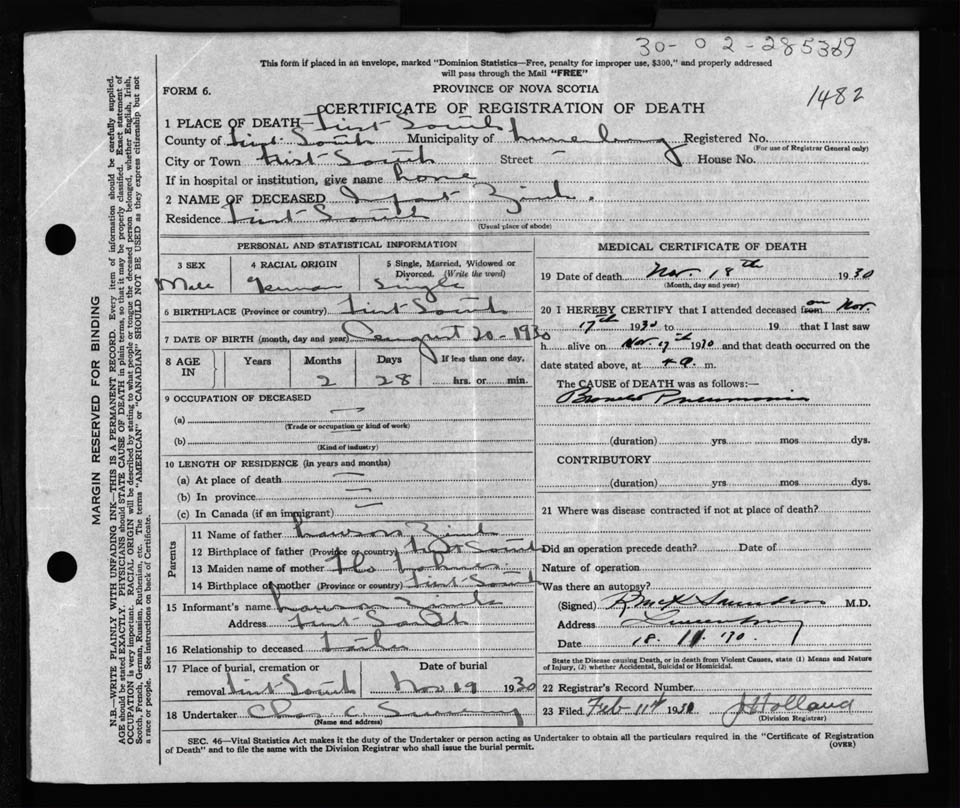 30-02-285389
This form if placed in an envelope, marked "Dominion Statistics—Free, penalty for improper use, $300," and properly addressed
will pass through the Mail "FREE"
FORM 6.
PROVINCE OF NOVA SCOTIA
1482
CERTIFICATE OF REGISTRATION OF DEATH
1 PLACE OF DEATH— First South
County of First South Municipality of Lunenburg Registered No.
(For use of Registrar General only)
City or Town First South Street — House No.
If in hospital or institution, give name home
2 NAME OF DECEASED Infant Zinck.
Residence First South
(Usual place of abode)
PERSONAL AND STATISTICAL INFORMATION
3 SEX 4 RACIAL ORIGIN 5 Single, Married, Widowed or Divorced. (Write the word)
Male German Single
6 BIRTHPLACE (Province or country) First South
7 DATE OF BIRTH (month, day and year) August 20-1930
8 AGE IN Years Months Days If less than one day,
2 28 hrs. or min.
9 OCCUPATION OF DECEASED
(a) —
(Trade or occupation or kind of work)
(b) —
(Kind of industry)
10 LENGTH OF RESIDENCE (in years and months)
(a) At place of death —
(b) In province —
(c) In Canada (if an immigrant) —
Parents
11 Name of father Lawson Zinck
12 Birthplace of father (Province or country) First South
13 Maiden name of mother
14 Birthplace of mother (Province or country) First South
15 Informant's name Lawson Zinck
Address First South
16 Relationship to deceased Father
17 Place of burial, cremation or Date of burial
removal First South Nov 19 1930
18 Undertaker Chas C
(Name and address)
MEDICAL CERTIFICATE OF DEATH
19 Date of death Nov 18th 1930
(Month, day and year)
20 I HEREBY CERTIFY that I attended deceased from on Nov.
17th 1930 to 19 that I last saw
h alive on Nov. 17 1930 and that death occurred on the
date stated above, at m.
The CAUSE OF DEATH was as follows:—
Broncho Pneumonia
(duration) yrs mos dys.
CONTRIBUTORY
(duration) yrs mos dys.
21 Where was disease contracted if not at place of death?
Did an operation precede death? Date of
Nature of operation
Was there an autopsy?
(Signed) Saunders M.D.
Address Lunenburg
Date 18. 11. 30.
State the Disease causing Death, or in death from Violent Causes, state (1) Means and Nature
of Injury, (2) whether Accidental, Suicidal or Homicidal.
22 Registrar's Record Number
23 Filed Feb 11th 1931 J Holland
(Division Registrar)
SEC. 46—Vital Statistics Act makes it the duty of the Undertaker or person acting as Undertaker to obtain all the particulars required in the "Certificate of Registration
of Death" and to file the same with the Division Registrar who shall issue the burial permit.
(OVER)
MARGIN RESERVED FOR BINDING
N.B.—WRITE PLAINLY WITH UNFADING INK—THIS IS A PERMANENT RECORD. Every item of information should be carefully supplied.
AGE should be stated EXACTLY. PHYSICIANS should STATE CAUSE OF DEATH in plain terms, so that it may be properly classified. Exact statement of
OCCUPATION is very important. RACIAL ORIGIN will be described by stating to what people or tongue the deceased person belonged, whether English, Irish,
Scotch, French, German, Russian, Ruthenian, etc. The terms "AMERICAN" or "CANADIAN" SHOULD NOT BE USED as they express citizenship but not
a race or people. See instructions on back of Certificate.